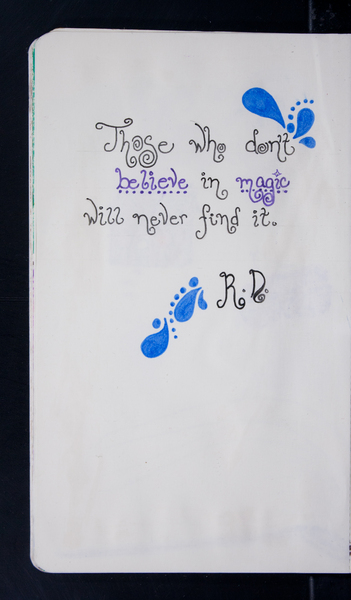 Those who don't
believe in magic
will never find it.
R.D.